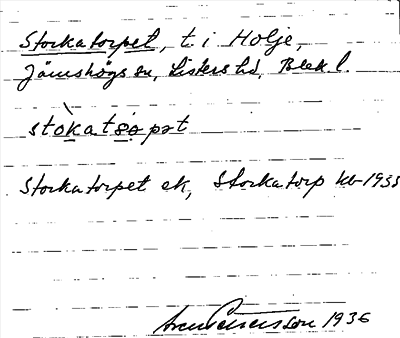 Storkatorpet, t. i Holje,
Jämshögs sn, Listers hd, Blek. l.
stòkatsopət
Storkatorpet ek, Storkatorp kb 1933
1936